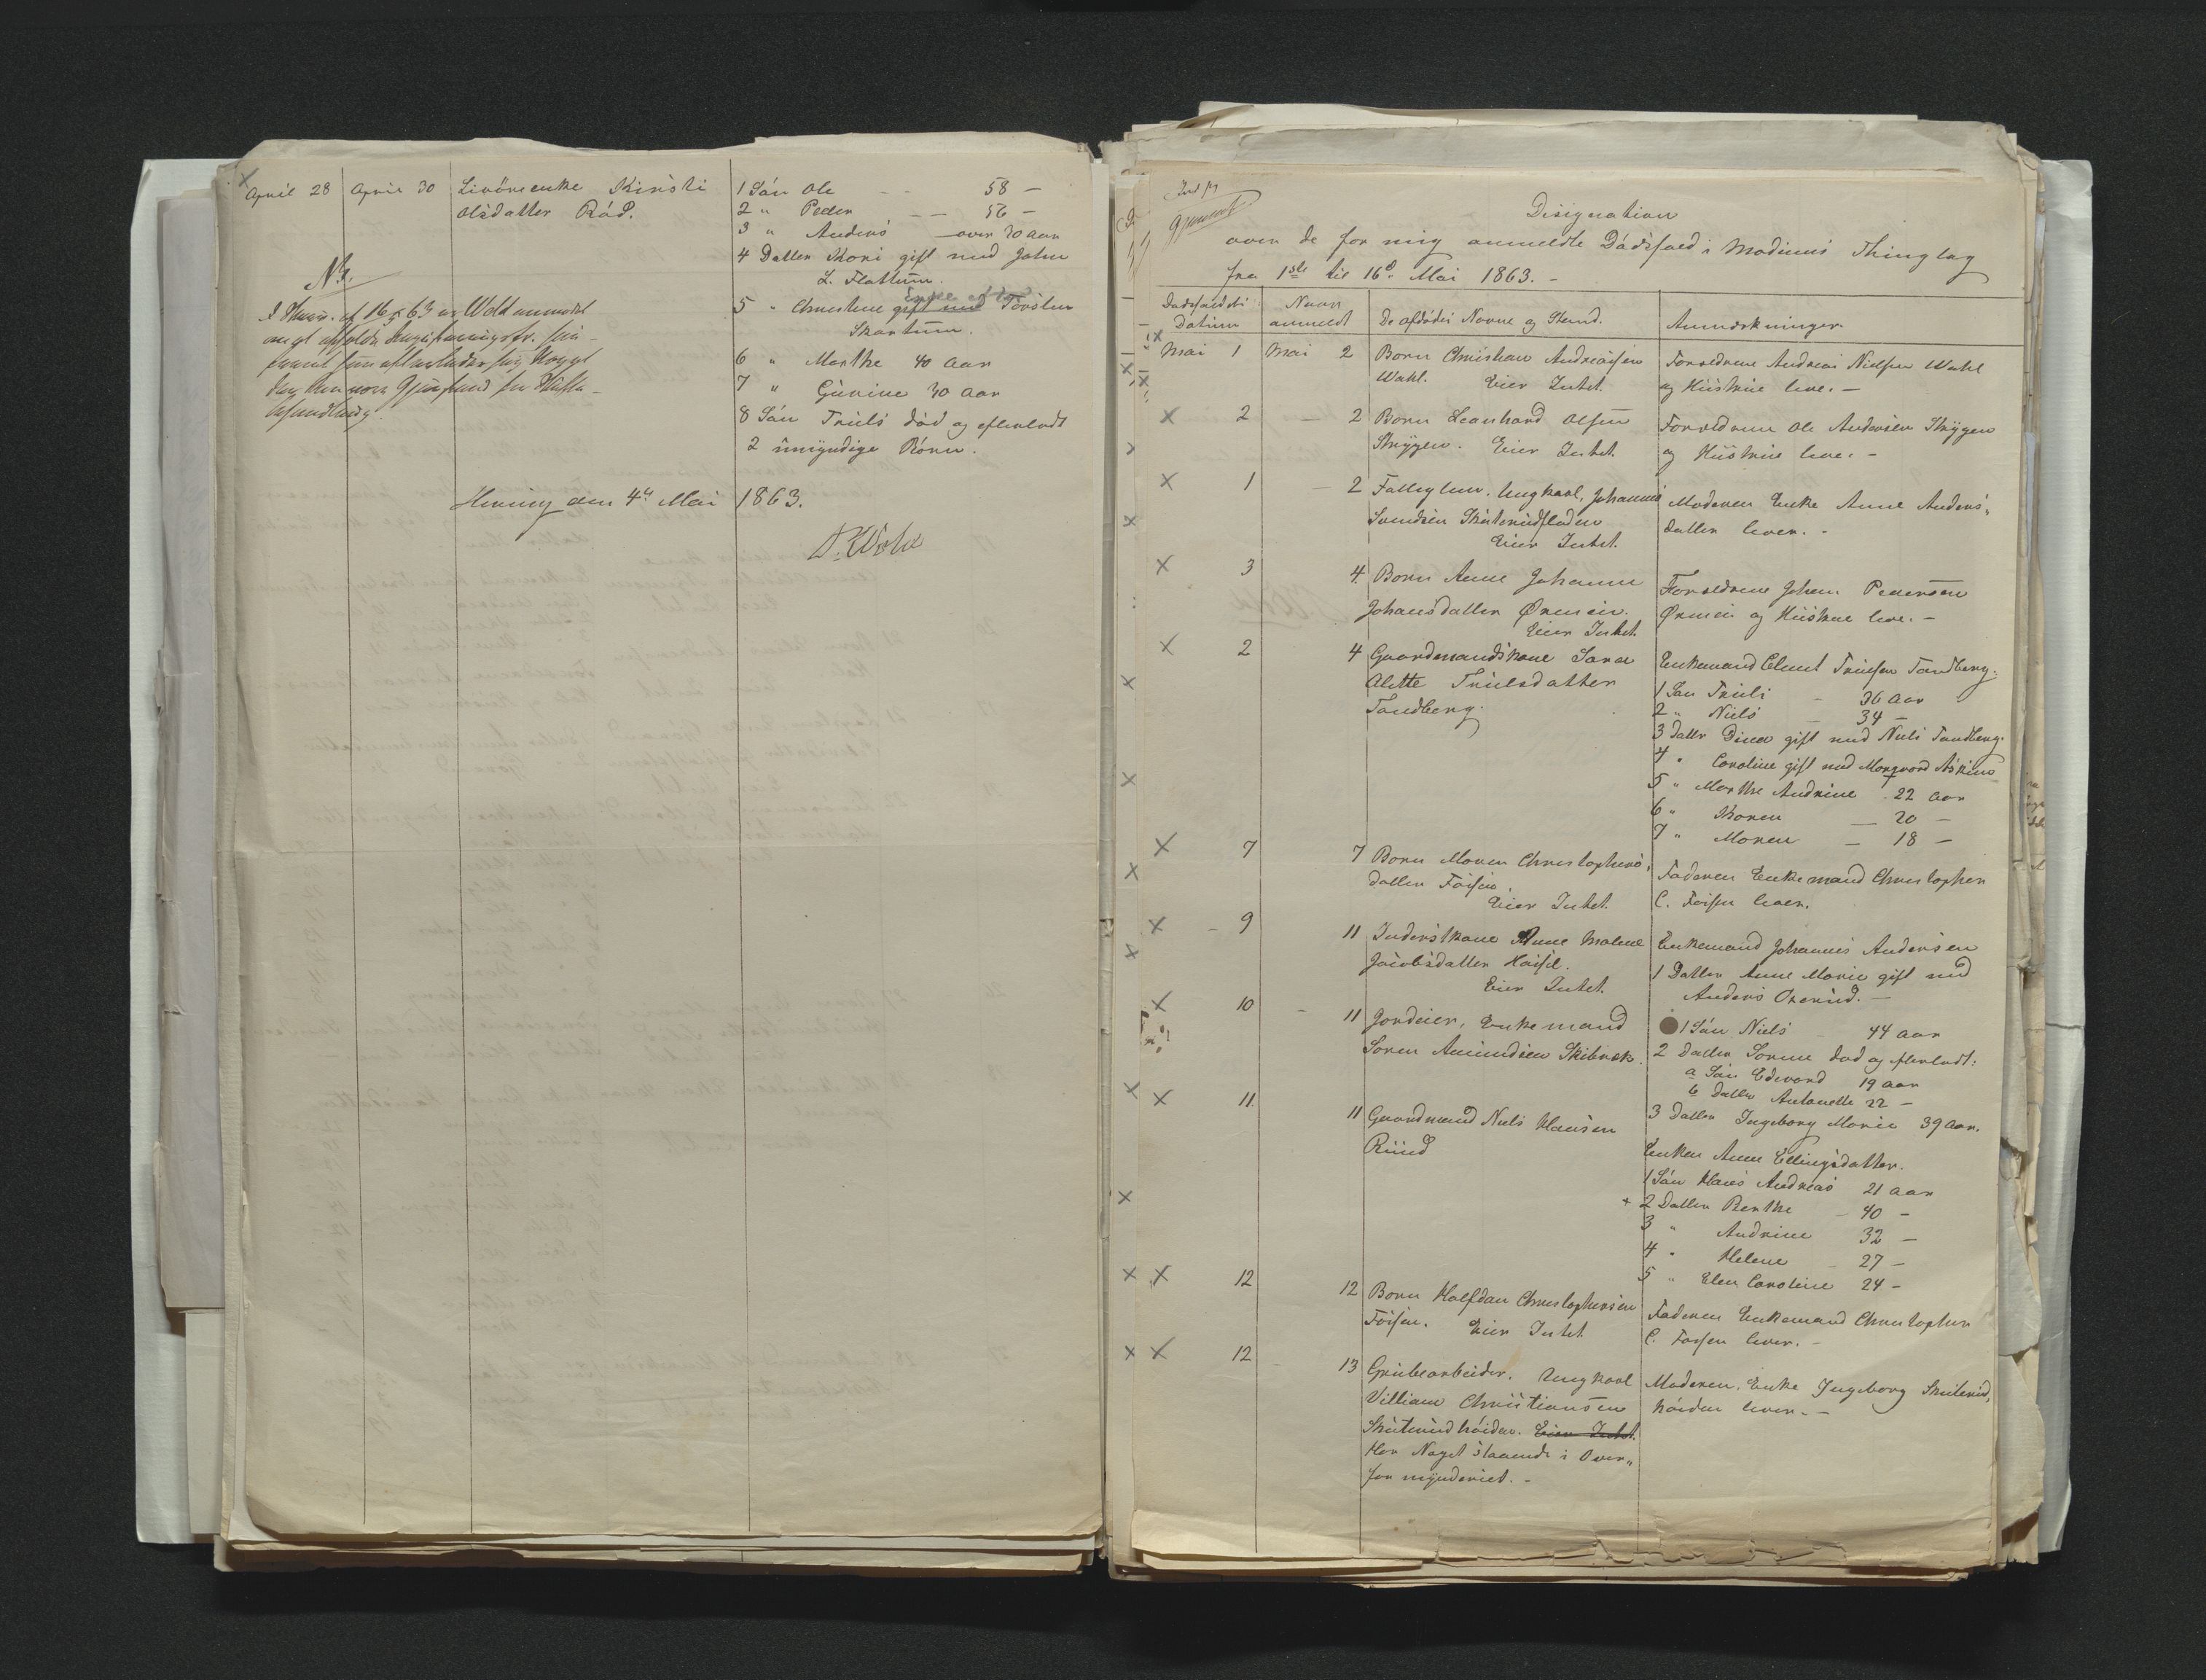 April 28 April 30 Livöreenke Kirsti
Olsdatter Röd.
1 Sön Ole 58 —
2 " Peder — — 56 —
3 " Anders — over 30 Aar
4 Datter Kari gift med John
L. Flattum.
Enke efter
5 " Christine gift med Torsten
Skartum.
6 " Marthe 40 Aar
7 " Gurine 30 Aar
8 Sön Truls död og efterladt
2 umyndige Börn.
Nb.
16/5 63 er Wold anmodet
Hering den 4de Mai 1863.
Wold
Designation
over de for mig anmeldte Dödsfald i Modums Thinglag
fra 1ste til 16de Mai 1863. —
Dödsfaldets Datum
Naar anmeldt
De afdödes Navne og Stand.
Anmærkninger.
Mai 1 Mai 2 Barn Christian Andreassen
Wahl. Eier Intet.
Forældrene Andreas Nielsen Wahl
og Hustrue leve. —
2 — 2 Barn Leonhard Olsen
Strygen. Eier Intet.
Forældrene Ole Andersen Strygen
og Hustrue leve. —
1 — 2 Fattiglem, Ungkarl, Johannes
Svendsen Skuterudfladen
Eier Intet.
Moderen Enke Anne Anders-
datter lever. —
3 4 Barn Anne Johanne
Johansdatter Ørmein.
Eier Intet.
Forældrene Johan Pedersen
Ørmein og Hustrue leve. —
2 4 Gaardmandskone Sara
Alette Trulsdatter
Tandberg.
Enkemand Clemet Trulsen Tandberg.
1 Sön Truls — 36 Aar
2 " Niels — 34 —
3 Datter Dina gift med Niels Tandberg.
4 " Caroline gift med
5 " Marthe Andrine 22 Aar
6 " Karen — 20 —
7 " Maren — 18 —
7 7 Barn Maren Christophers-
datter Fossen.
Eier Intet.
Faderen Enkemand Christopher
C. Fossen lever.
9 11 Inderstkone Anne Malene
Jacobsdatter
Eier Intet.
Enkemand Johannes Andersen
1 Datter Anne Marie gift med
Anders Okerud. —
10 — 11 Jordeier, Enkemand
Soren Amundsen Skibræk.
1 Sön Niels 44 Aar
2 Datter Sorine död og efterladt:
a Sön Edvard 19 Aar
b Datter Antonette 22 —
3 Datter Ingeborg Marie 39 Aar.
11. 11 Gaardmand Niels Hansen
Ruud
Enken Anne Ellingsdatter.
1 Sön Hans Andreas 21 Aar
+ 2 Datter Berthe — 40 —
3 " Andrine 32 —
4 " Helene — 27 —
5 " Elen Caroline 24 —
12 12 Barn Halfdan Christophersen
Fossen. Eier Intet.
Faderen Enkemand Christopher
C. Fossen lever. —
12 — 13 Grubearbeider, Ungkarl
Villiam Christiansen
Skuterudhöiden. Eier Intet.
Har Noget staaende i Over-
formynderiet. —
Moderen, Enke Ingeborg Skuterud-
höiden lever. —